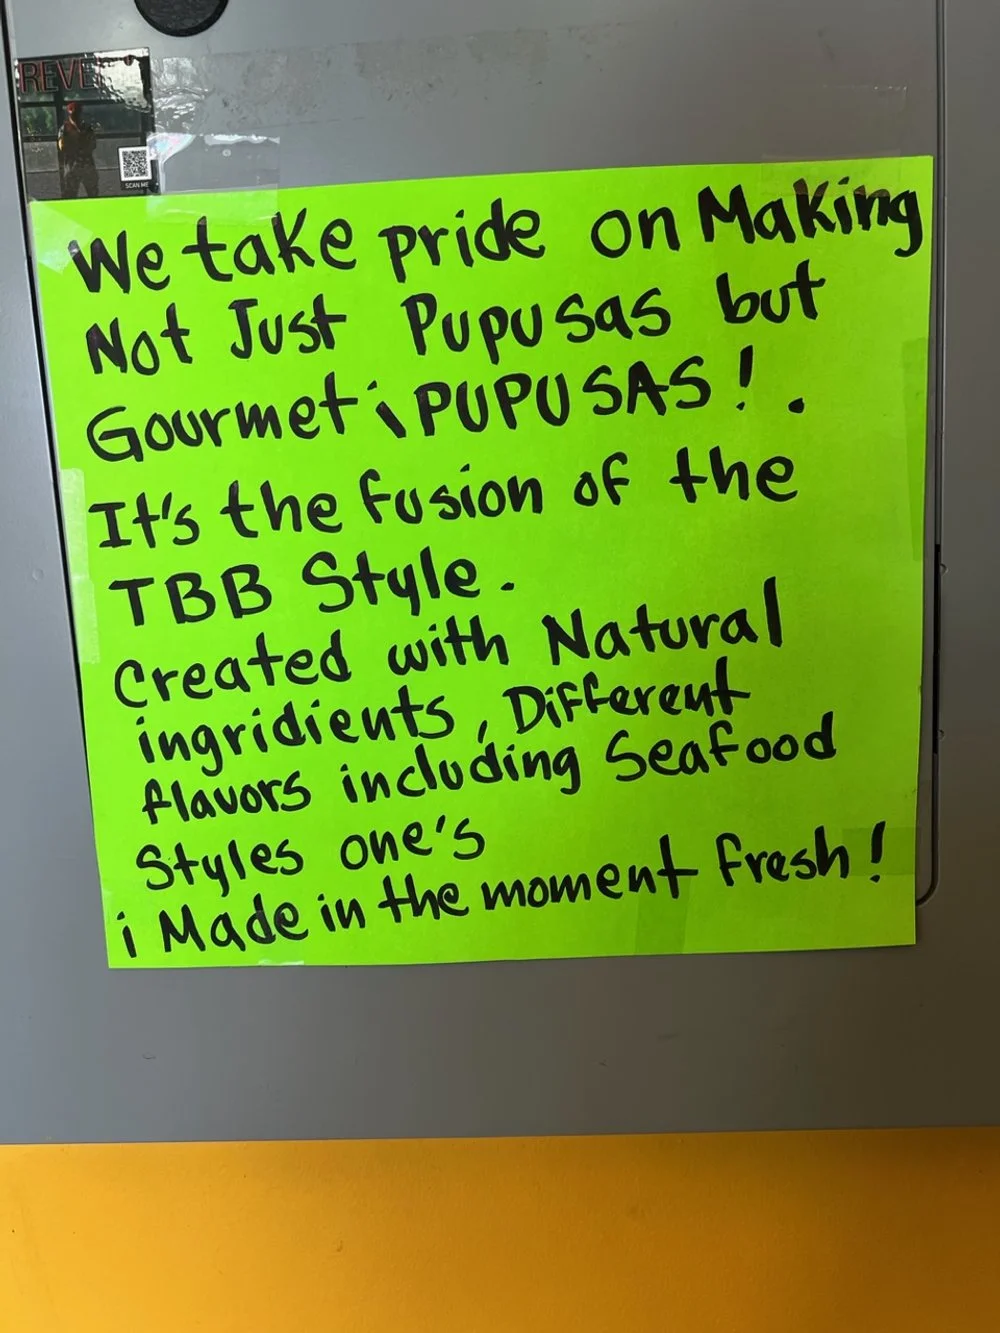 REVE
SCAN ME
We take pride on Making
Not Just Pupusas but
Gourmet ¡PUPUSAS! .
It's the fusion of the
TBB Style.
Created with Natural
ingridients, Different
flavors including Seafood
Styles one's
¡ Made in the moment fresh!